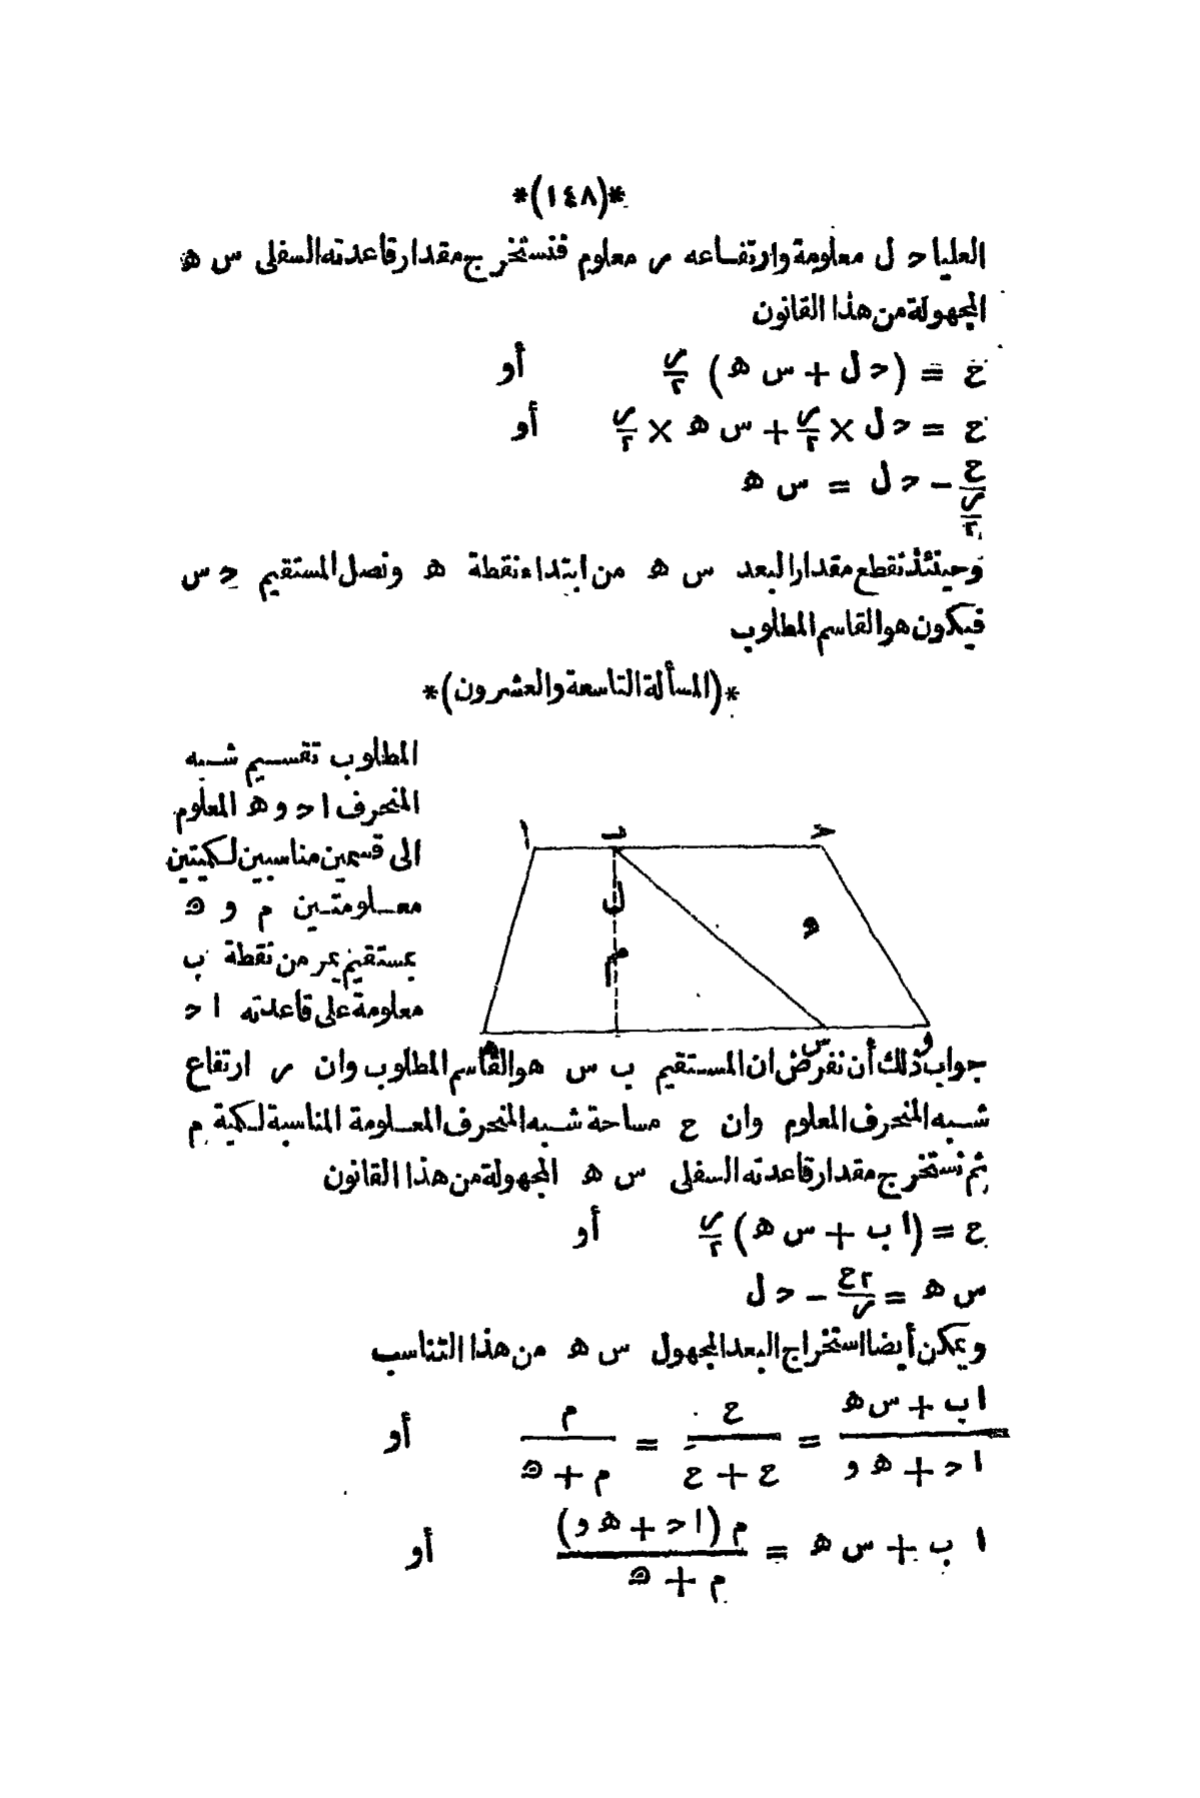 *(١٤٨)*
العليا حـ ل معلومة وارتفاعه ر معلوم فنستخرج مقدار قاعدته السفلى س هـ
المجهولة من هذا القانون
ح = (حـ ل + س هـ) ر/٢ أو
ح = حـ ل × ر/٢ + س هـ × ر/٢ أو
ح/(ر/٢) − حـ ل = س هـ
وحينئذ نقطع مقدار البعد س هـ من ابتداء نقطة هـ ونصل المستقيم حـ س
فيكون هو القاسم المطلوب
*(المسألة التاسعة والعشرون)*
المطلوب تقسيم شبه
المنحرف ا حـ و هـ المعلوم
الى قسمين مناسبين لكميتين
معلومتين م و ں
بمستقيم يمر من نقطة ب
معلومة على قاعدته ا حـ
ا ب حـ
ل
و
م
هـ س و
جواب ذلك أن نفرض ان المستقيم ب س هو القاسم المطلوب وان ر ارتفاع
شبه المنحرف المعلوم وان ح مساحة شبه المنحرف المعلومة المناسبة لكمية م
ثم نستخرج مقدار قاعدته السفلى س هـ المجهولة من هذا القانون
ح = (ا ب + س هـ) ر/٢ أو
س هـ = ٢ح/ر − حـ ل
ويمكن أيضا استخراج البعد المجهول س هـ من هذا التناسب
(ا ب + س هـ)/(ا حـ + هـ و) = ح/(ح + حَ) = م/(م + ں) أو
ا ب + س هـ = م (ا حـ + هـ و)/(م + ں) أو